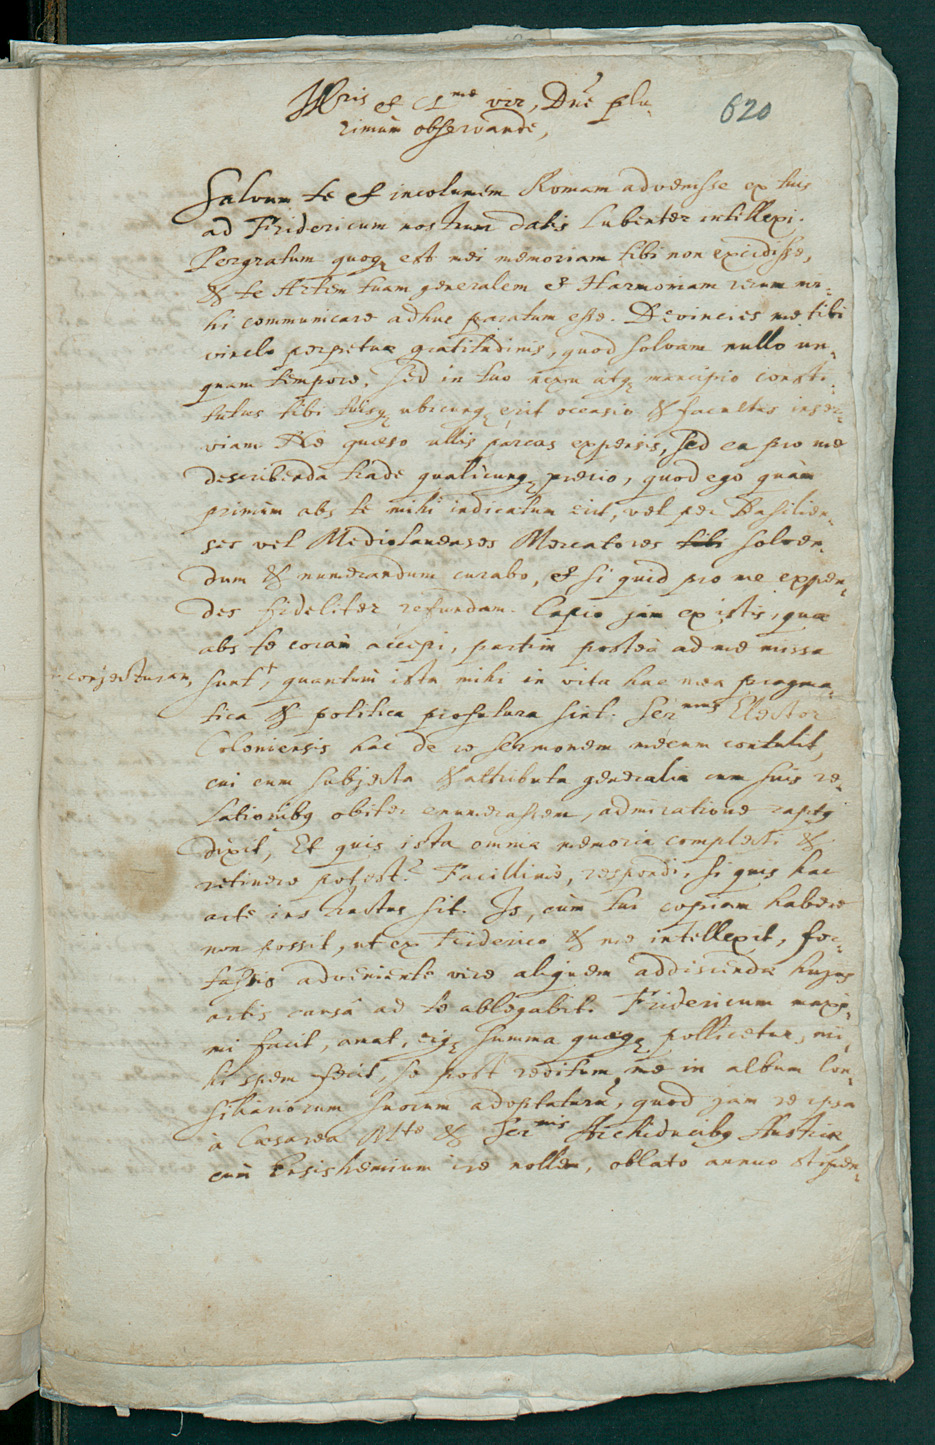 Illris et Clme vir, Dne plu-
rimùm observande,
620
Salvum te et incolumem Romam advenisse ex tuis
ad Fridericum nostrum datis lubenter intellexi.
Pergratum quoq est mei memoriam tibi non excidisse,
& te Artem tuam generalem et Harmoniam rerum mi-
hi communicare adhuc paratum esse. Devincies me tibi
vinclo perpetuae gratitudinis, quod solvam nullo un-
quam tempore, sed in tuo nexu atq mancipio consti-
tutus tibi tuisq ubicunq erit occasio & facultas inser-
viam Ne quaeso ullis parcas expensis, sed ea pro me
describenda trade qualicunq precio, quod ego quàm
primùm abs te mihi indicatum erit, vel per Basilien-
ses vel Mediolanenses Mercatores tibi solven-
dum & numerandum curabo, et si quid pro me expen-
des fideliter refundam. Capio jam ex istis, quae
abs te coràm accepi, partim posteà ad me missa
+ conjecturam,
sunt+, quantùm ista mihi in vita hac mea pragma-
tica & politica profutura sint. Sermus Elector
Coloniensis hac de re sermonem mecum contulit,
cui cum subjecta & attributa generalia cum suis re-
lationibq obiter enumerassem, admiratione raptq
dixit, Et quis ista omnia memoria complecti &
retinere potest? Facillimè, respondi, si quis hac
arte instructus sit. Is, cùm tui copiam habere
non possit, ut ex Friderico & me intellexit, for-
tassis adveniente vire aliquem addiscendae hujus
artis causâ ad te ablegabit. Fridericum maxi-
mi facit, amat, eiq summa quaeq pollicetur, mi-
hi spem fecit, se post reditum me in album con-
siliariorum suorum adoptaturû, quod jam re ipsa
à Caesarea Mte & Sermis Archiducibq Austriae,
cùm Ensishemium ire nollem, oblato annuo stipen-